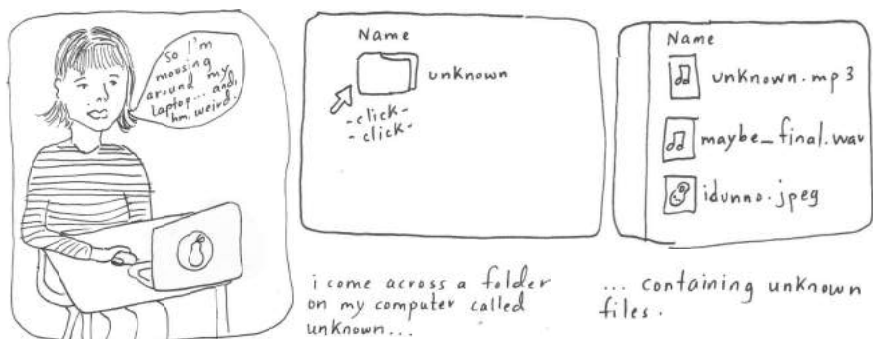 So I'm
mousing
around my
laptop... and,
hm, weird.
Name
unknown
-click-
-click-
i come across a folder
on my computer called
unknown...
Name
unknown.mp3
maybe_final.wav
idunno.jpeg
... containing unknown
files.